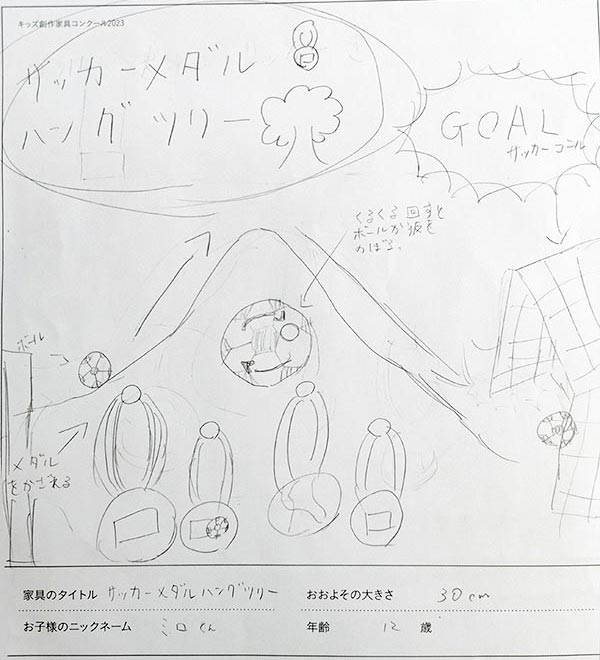 キッズ創作家具コンクール2023
サッカーメダル
ハングツリー
GOAL
サッカーゴール
くるくる回すと
ボールが坂を
のぼる。
ボール
メダル
をかざれる
家具のタイトル サッカーメダルハングツリー
おおよその大きさ 30cm
お子様のニックネーム ミロくん
年齢 12 歳